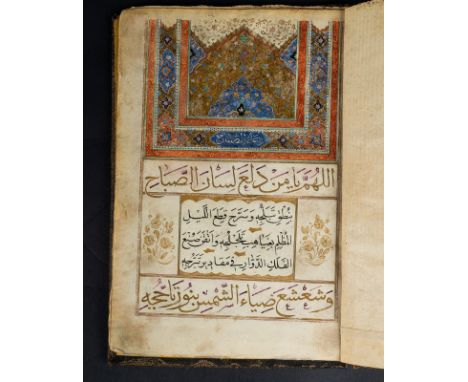 اللهم يا من دلع لسان الصباح
بنطق تبلجه وسرح قطع الليل
المظلم بغياهب تلجلجه واتقن صنع
الفلك الدوار في مقادير تبرجه
وشعشع ضياء الشمس بنور تاججه